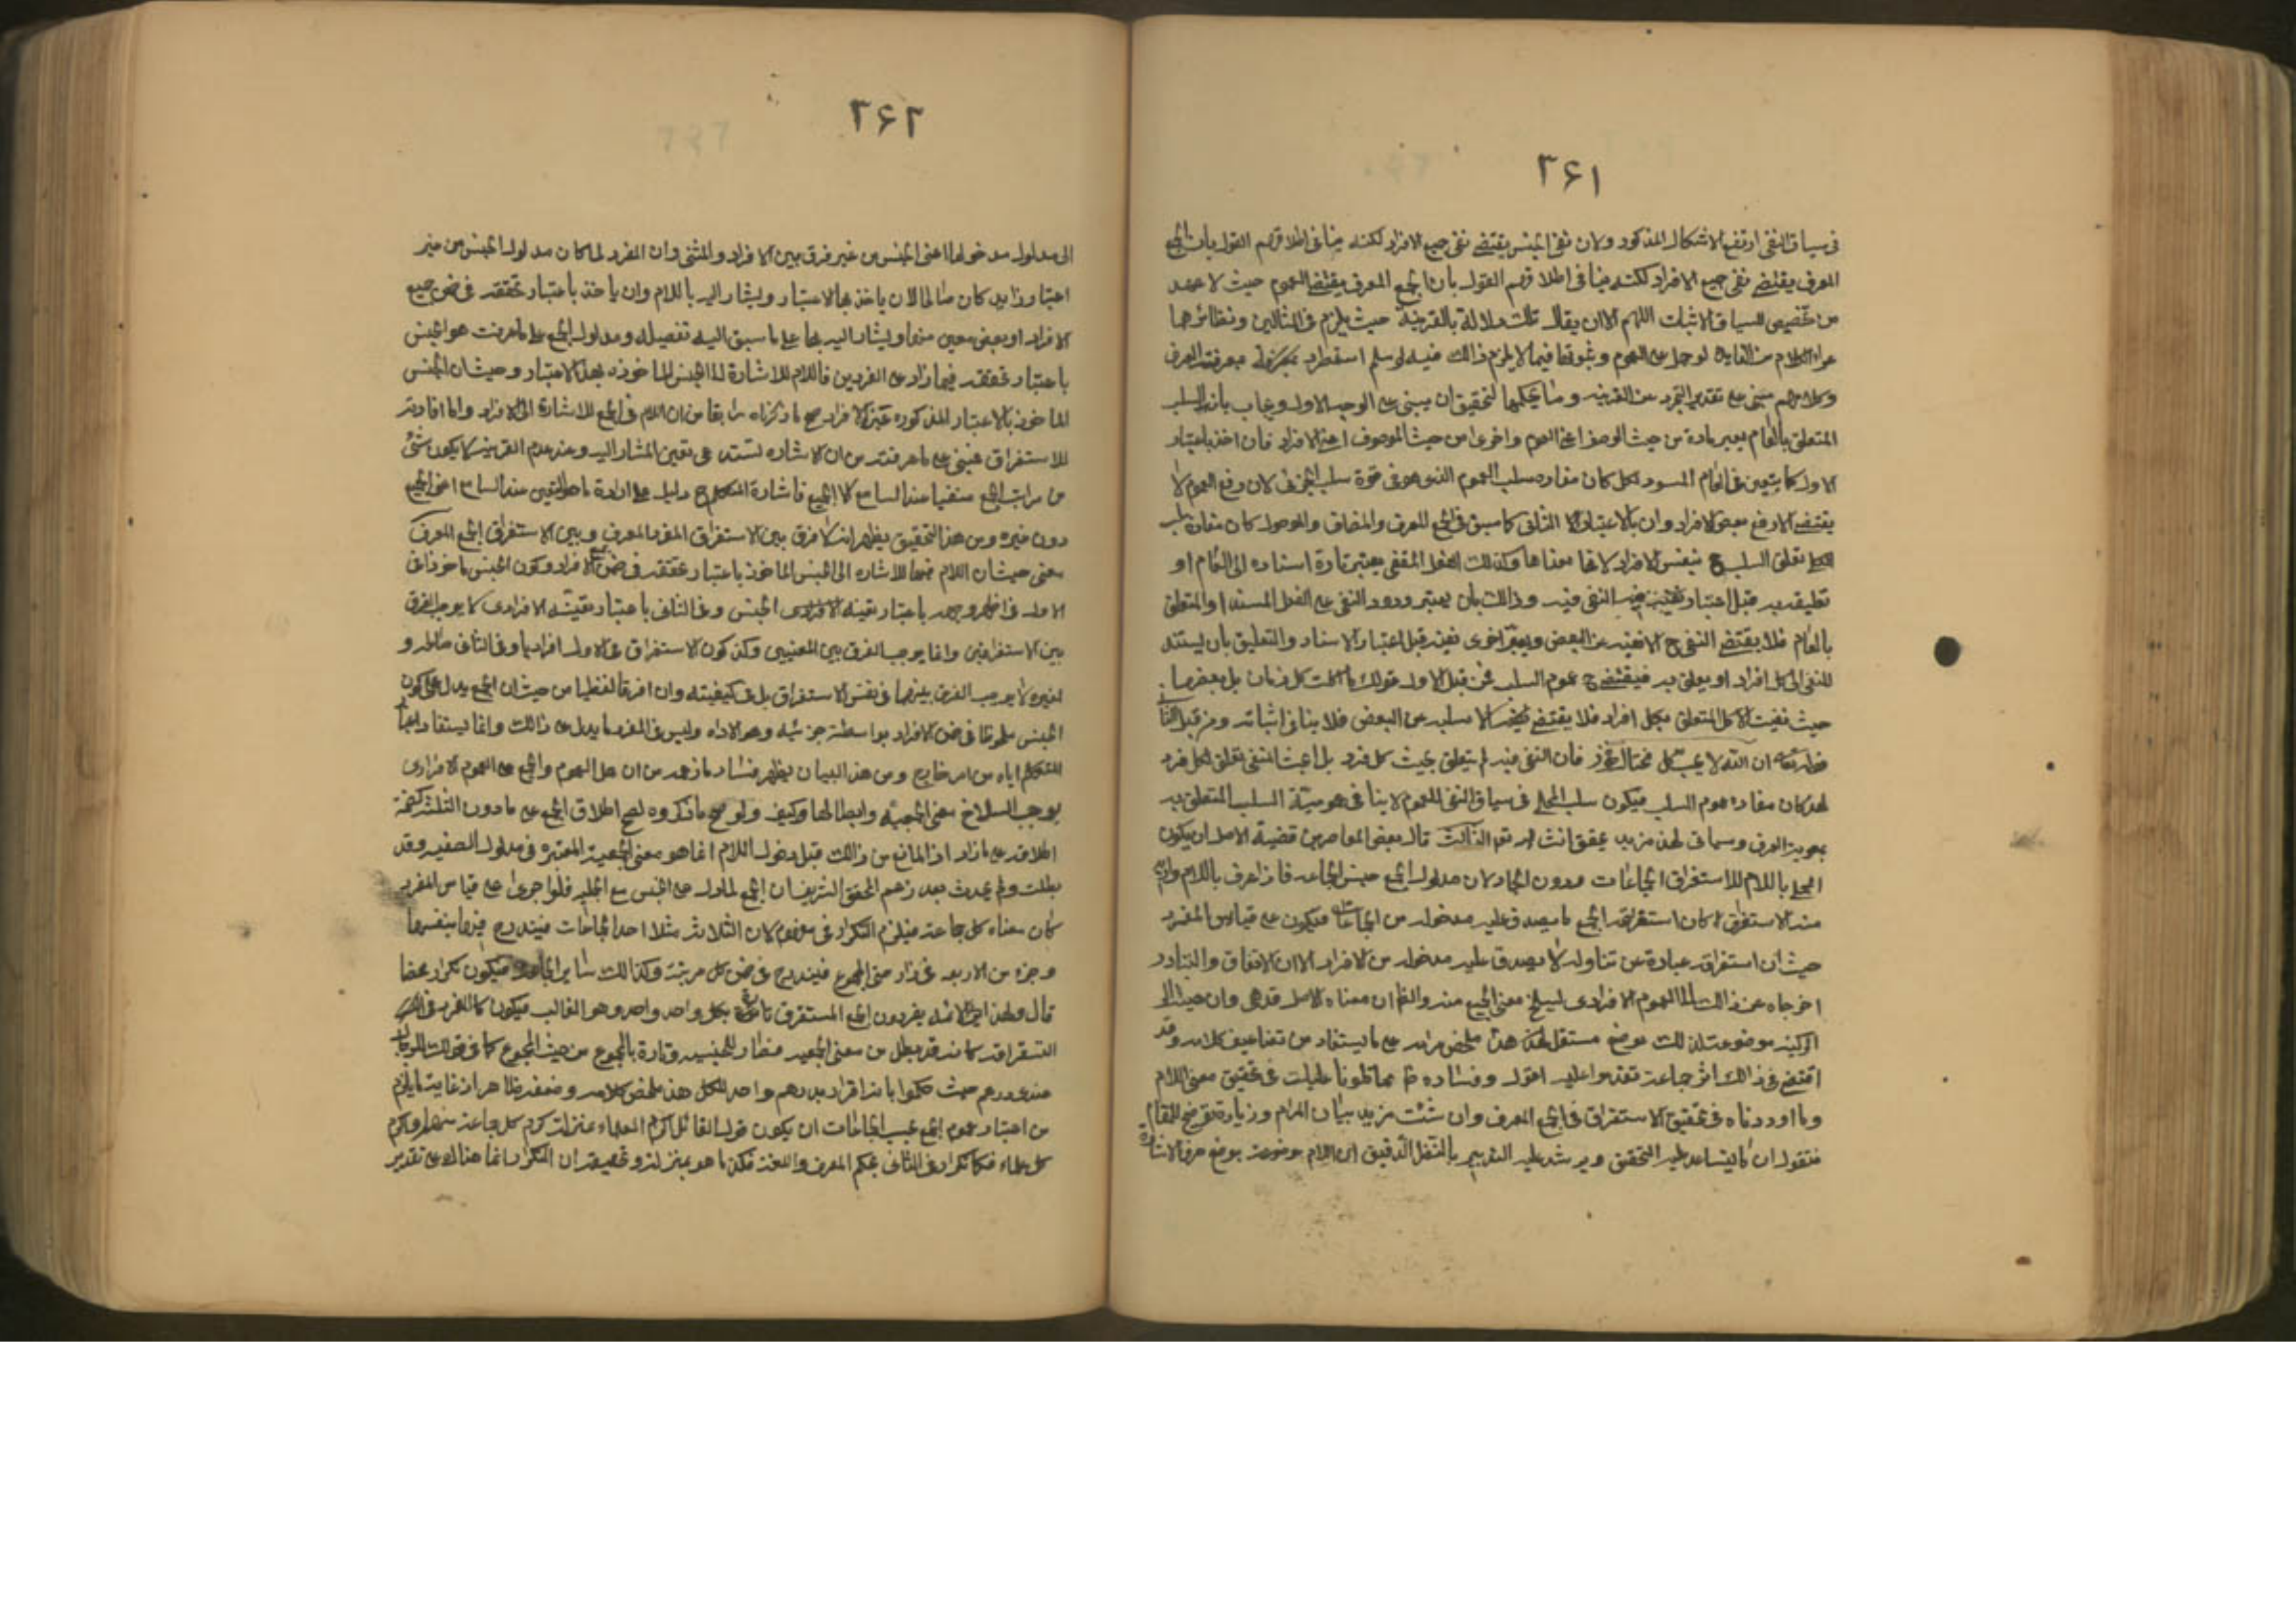 ٣۶١
فى سياق النفى ارتفع الاشكال المذكور ولان نفى الجنس يقتضى نفى جميع الافراد لكنه ينافى اطلاقهم القول بان الجمع
المعرف يقتضى نفى جميع الافراد لكنه ينافى اطلاقهم القول بان الجمع المعرف يقتضى العموم حيث لا عهد
من تخصيص السياق الاثبات اللهم الا ان يقال تلك دلالة بالقرينة حيث يلزم فى المثالين ونظائرهما
عراء الكلام من الفايدة لو حمل على العموم ونحوها فيما لا يلزم ذالك فيه لو سلم بمعرفة العرف
وكلامهم مبنى على تقدير التجرد عن القرينه التحقيق ان يبنى على الوجه الاول ويجاب بان السلب
المتعلق بالعام يعتبر تارة من حيث الوصف اعنى العموم واخرى من حيث الموصوف اعنى الافراد فان اخذ باعتبار
الاول كما يتعين فى العام المسور بكل كان مفاده سلب العموم الذى هو فى قوة سلب الجزئى لان رفع العموم لا
يقتضى الا رفع بعض الافراد وان بالاعتبار الثانى كما سبق فى الجمع المعرف والمضاف والموصول كان مفاده
تعلق السلب ح بنفس الافراد لانها معناها وكذلك الفعل المنفى يعتبر تارة اسناده الى العام او
تعليقه به قبل اعتبار النفى فيه وذالك بان يعتبر ورود النفى على الفعل المسند او المتعلق
بالعام فلا يقتضى النفى ح الا نفيه عن البعض ويعتبر اخرى نفيه قبل اعتبار الاسناد والتعليق بان يستند
المنفى الى كل افراد او يعلق به فيقتضى ح عموم السلب فمن قبل الاول قولك ما اكلت كل رمان بل بعضها
حيث نفيت الاكل المتعلق بكل افراد فلا يقتضى الا سلبه عن البعض فلا ينافى اثباته ومن قبيل الثانى
قوله تعالى ان الله لا يحب كل مختال فخور فان النفى فيه لم يتعلق بحيث كل فرد بل اعتبر المنفى تعلق لكل فرد
لهذ كان مفاده عموم السلب فيكون سلب المحلى فى سياق النفى للعموم لا ينافى عمومية السلب المتعلق به
بمعونة العرف وسياتى لهذ مزيد تحقيق انشاء الله تعم الثالث قال بعض المعاصرين قضية الاصل ان يكون
المحلى باللام للاستغراق الجماعات دون الاحاد لان مدلول الجمع جنس الجماعه فاذا عرف باللام واريد
منه الاستغراق كان استغراقه لجميع ما يصدق عليه مدخوله من الجماعات فيكون على قياس المفرد
حيث ان استغراقه عبارة عن تناوله لا يصدق عليه مدخوله من الافراد الا ان الاتفاق والتبادر
اخرجاه عن ذالك الى العموم الافرادى ليسلخ معنى الجمع منه والظ ان معناه الاصل قد هجر وان هيئة
التركيبيه موضوعة لذلك بوضع مستقل هذ ملخص مرامه على ما يستفاد من تضاعيف كلامه وقد
اقتفى فى ذالك اثر جماعة تقدموا عليه اقول وفساده ظ مما تلونا عليك فى تحقيق معنى اللام
وما اوردناه فى تحقيق الاستغراق فى الجمع المعرف وان شئت مزيد بيان المرام وزيادة توضيح للمقام
فنقول ان ما يساعد عليه التحقيق ويرشد عليه التدبير بالنظر الدقيق ان اللام موضوعة بوضع حرف الاشارة
٣۶٢
الى مدلول مدخولها اعنى الجنس من غير فرق بين الافراد والمثنى وان المفرد لما كان مدلوله الجنس من غير
اعتبار زايد كان صالحا لان ياخذ بهذ الاعتبار ويشار اليه باللام وان ياخذ باعتبار تحققه فى ضمن جميع
الافراد او بعض معين منها ويشار اليه بها على ما سبق اليه تفصيله ومدلول الجمع على ما عرفت هو الجنس
باعتبار تحققه فيما زاد على الفردين فاللام للاشارة الى الجنس الماخوذه بهذ الاعتبار وحيث ان الجنس
الماخوذ بالاعتبار المذكوره عين الافراد صح ما ذكرناه سابقا من ان اللام فى الجمع للاشارة الى الافراد واما افادته
للاستغراق فمبنى على ما عرفته من ان الاشاره تستدعى تعين المشار اليه وعند عدم القرينه لا يكون شئ
من مراتب الجمع متعينا عند السامع الا الجميع فاشارة المتكلم ح دليل على ارادة ما هو المتعين عند السامع اعنى الجميع
دون غيره ومن هذ التحقيق يظهر انه لا فرق بين الاستغراق المفرد المعرف وبين الاستغراق الجمع المعرف
معنى حيث ان اللام فيهما للاشاره الى الجنس الماخوذ باعتبار تحققه فى ضمن الافراد وكون الجنس ماخوذا فى
الاول باعتبار تعينه الجنسى وفى الثانى باعتبار تعينه الافرادى لا يوجب الفرق
بين الاستغراقين وانما يوجب الفرق بين المعنيين وكذ كون الاستغراق فى الاول افراديا وفى الثانى صالحا له و
لغيره لا يوجب الفرق بينهما فى نفس الاستغراق بل فى كيفيته وان افرقا لفظيا من حيث ان الجمع يدل على كون
الجنس ملحوظا فى ضمن الافراد بواسطة جزئيه وهو الاداه وليس فى المفرد ما يدل على ذالك وانما يستفاد
المتكلم اياه من امر خارج ومن هذ البيان يظهر فساد ما زعمه من ان حمل العموم والجمع على العموم الافرادى
يوجب انسلاخ معنى الجمعيه وابطالها وكيف ولو صح ما ذكروه لصح اطلاق الجمع على ما دون الثلثة كصحة
اطلاقه على ما زاد اذ المانع من ذالك قبل دخول اللام انما هو معنى الجمعية المعتبره فى مدلول الصيغه وقد
بطلت ولم يحدث بعد زعم المحقق الشريف ان الجمع لما دل على الجنس مع الجمعيه فلو اجرى على قياس المفرد
كان معناه كل جماعة فيلزم التكرار فى مفهومه لان الثلاثة مثلا احد الجماعات فيندرج فيها بنفسها
وجزء من الاربعه فما زاد حتى المجموع فيندرج فى ضمن كل مرتبة وكذالك ساير الجماعات فيكون تكرار محضا
قال ولهذ ائمة يفردون الجمع المستغرق تارة بكل واحد واحد وهو الغالب فيكون كالمفرد فى
استغراقه كانه قد بطل من معنى الجمعيه فصار للجنسيه وتارة بالمجموع من حيث المجموع كما فى قولك للرجال
عندى درهم حيث حكموا بانه اقرار بدرهم واحد للكل هذ ملخص كلامه وضعفه ظاهر اذ غاية ما يلزم
من اعتبار عموم الجمع بحسب الجماعات ان يكون قول القائل اكرم العلماء بمنزلة اكرم كل جماعة منهم واكرم
كل علماء فكما لا تكرار فى الثانى بحكم العرف واللغة فكذ ما هو بمنزلته وتحقيقه ان التكرار انما هناك على تقدير